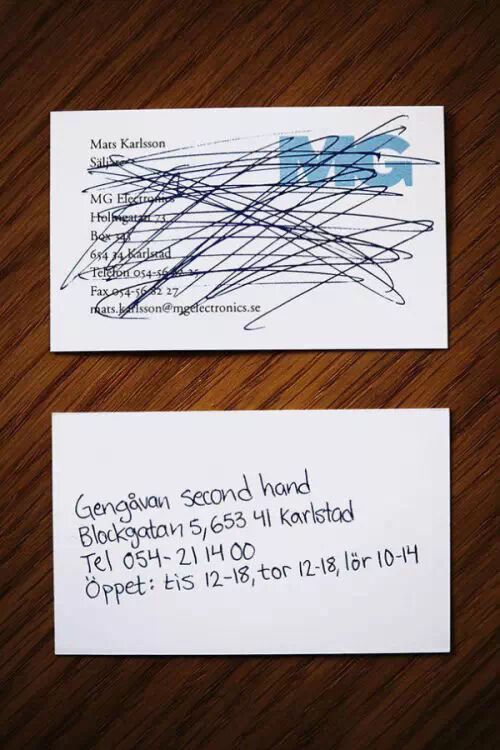 Mats Karlsson
MG
MG Electronics
73
Box
654 34 Karlstad
Telefon 054-56
Fax 054-56 82 27
mats.karlsson@mgelectronics.se
Gengåvan second hand
Blockgatan 5, 653 41 Karlstad
Tel 054-21 14 00
Öppet: tis 12-18, tor 12-18, lör 10-14